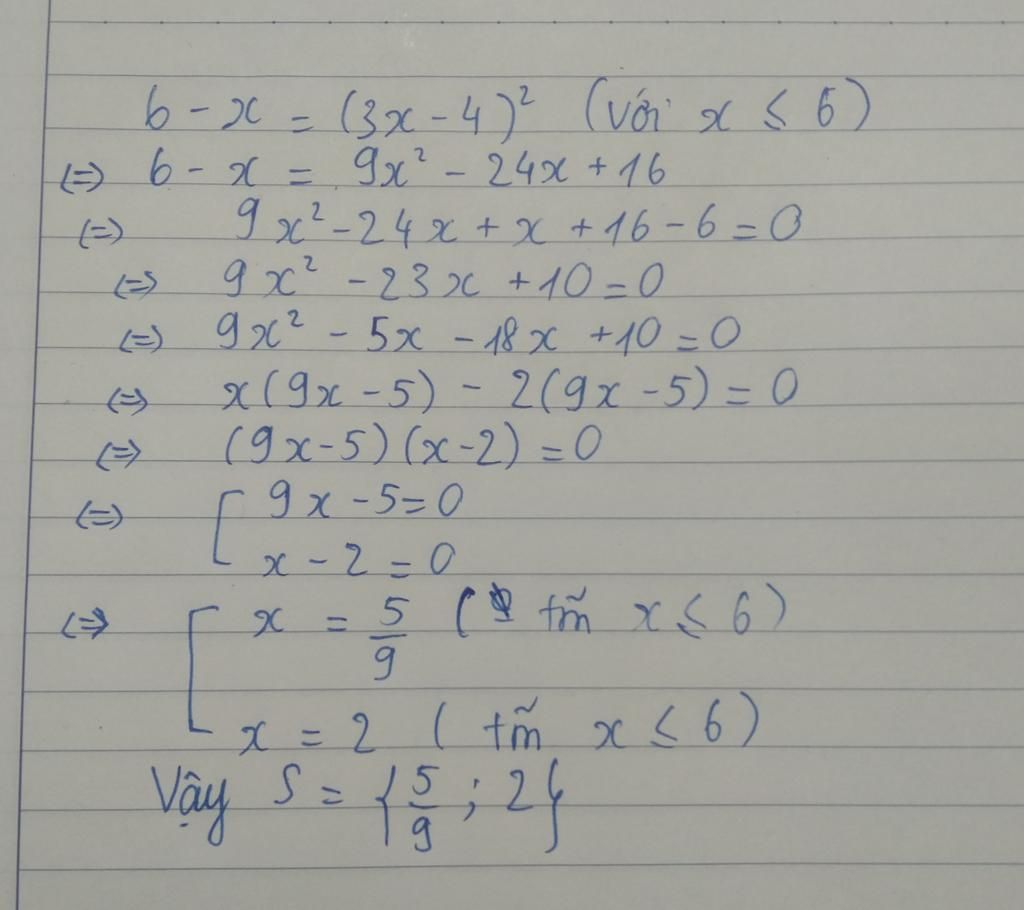 6 - x = (3x - 4)² (với x ≤ 6)
(=) 6 - x = 9x² - 24x + 16
(=) 9x² - 24x + x + 16 - 6 = 0
(=) 9x² - 23x + 10 = 0
(=) 9x² - 5x - 18x + 10 = 0
(=) x(9x - 5) - 2(9x - 5) = 0
(=) (9x - 5)(x - 2) = 0
(=) [ 9x - 5 = 0
x - 2 = 0
(=) [ x = 5/9 ( tm̃ x ≤ 6)
x = 2 ( tm̃ x ≤ 6)
Vậy S = {5/9 ; 2}